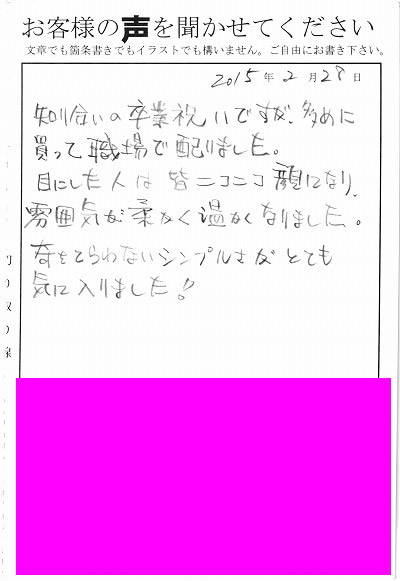 お客様の声を聞かせてください
文章でも箇条書きでもイラストでも構いません。ご自由にお書き下さい。
2015年2月28日
知り合いの卒業祝いですが、多めに
買って職場で配りました。
目にした人は皆ニコニコ顔になり、
雰囲気が柔なく温かくなりました。
奇をてらわないシンプルさがとても
気に入りました!